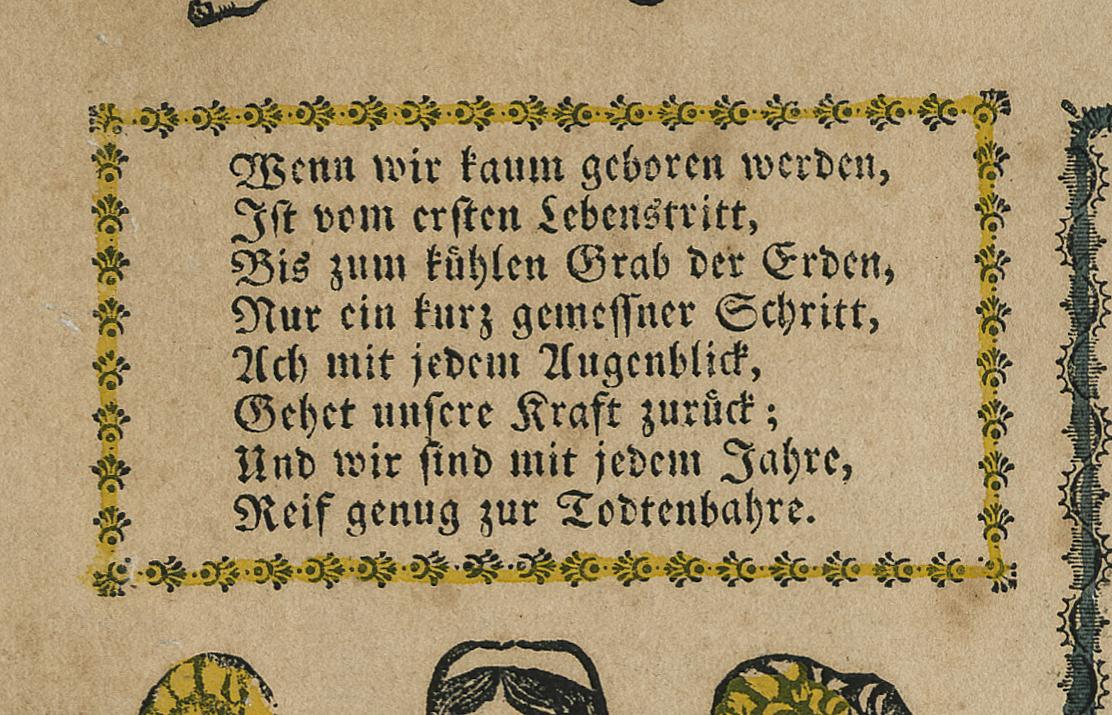 Wenn wir kaum geboren werden,
Ist vom ersten Lebenstritt,
Bis zum kühlen Grab der Erden,
Nur ein kurz gemessner Schritt,
Ach mit jedem Augenblick,
Gehet unsere Kraft zurück;
Und wir sind mit jedem Jahre,
Reif genug zur Todtenbahre.